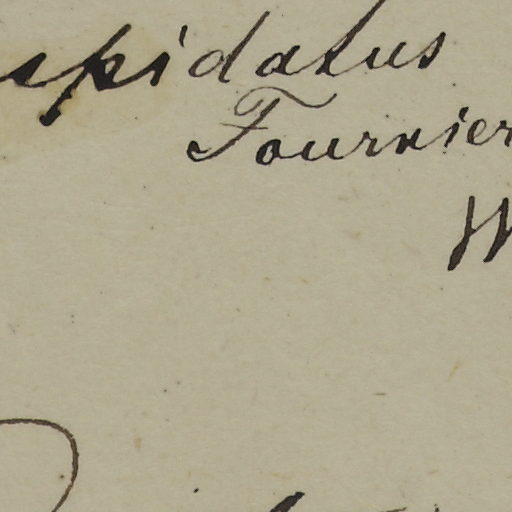 spidatus
Fournier
W